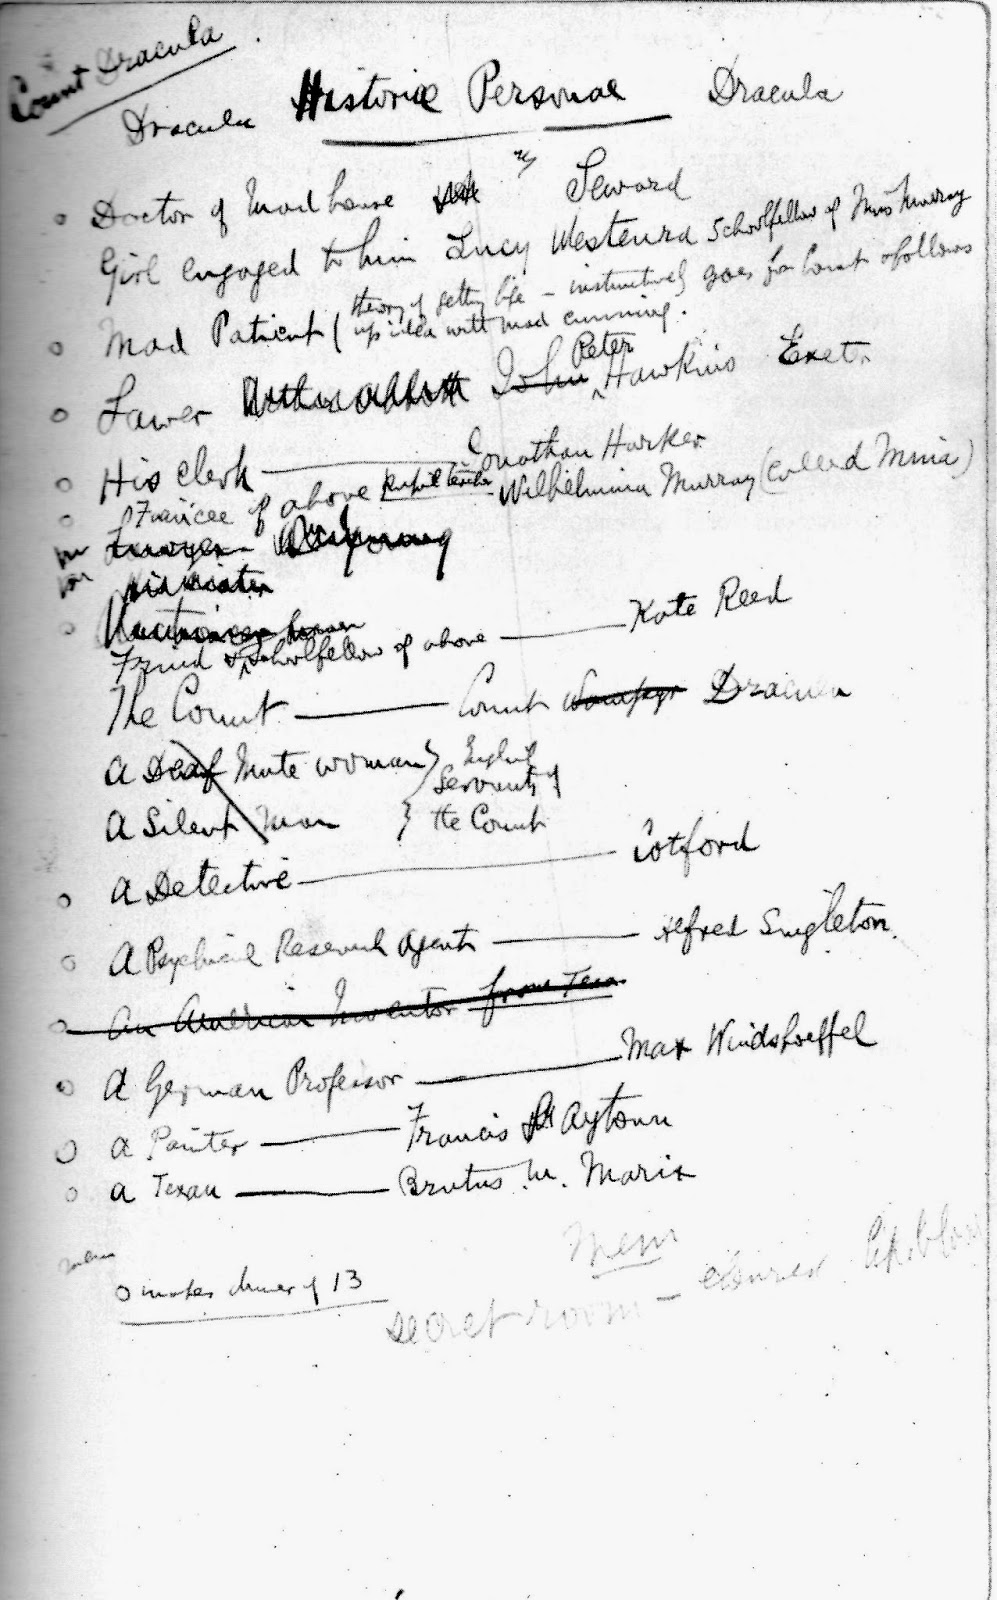 Count Dracula
Dracula Historiae Personae Dracula
Doctor of Mad house Seward
Girl engaged to him Lucy Westenra Schoolfellow of Miss Murray
Mad Patient (theory of getting life - instinctively goes for Count & follows
up idea with mad cunning.
Lawer John Peter Hawkins Exeter
His clerk — Jonathan Harker
Fiancee of above Pupil teacher Wilhelmina Murray (called Mina)
Lawyer
His Sister
Friend & Schoolfellow of above — Kate Reed
The Count — Count Wampyr Dracula
A Deaf Mute woman } English
Servants of
A Silent Man } the Count
A Detective — Cotford
A Psychical Research Agent — Alfred Singleton.
An American Inventor from Texas
A German Professor — Max Windshoeffel
A Painter — Francis Aytown
A Texan — Brutus M. Marix
Mem
Mem
o makes dinner of 13
secret room - coloured like blood